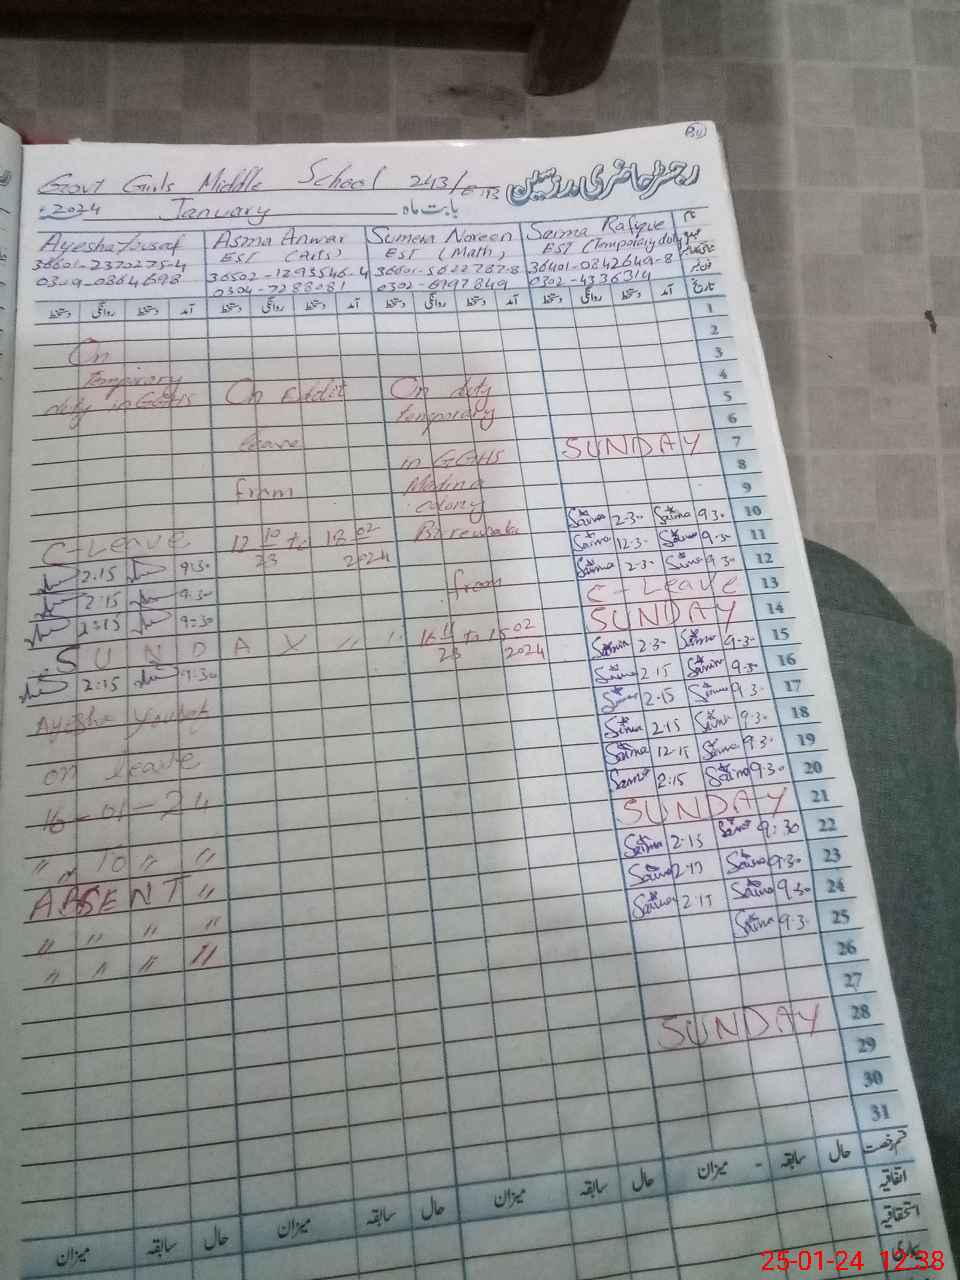 Govt Girls Middle School 243/E.B رجسٹر حاضری مدرسین
2024 January بابت ماہ
Ayesha Yousaf
36601-2370275-4
0309-0864698
Asma Anwar
EST (Arts)
36502-1293546-4
0304-7288081
Sumera Noreen
EST (Math)
36601-5622787-8
0302-6197849
Saima Rafique
EST (Temporary duty)
36401-0842649-8
0302-4336314
دستخط روانگی دستخط آمد دستخط روانگی دستخط آمد دستخط روانگی دستخط آمد دستخط روانگی دستخط آمد تاریخ
1
2
On 3
Temporary 4
duty in GGHS On Exdit On duty 5
temporary 6
leave SUNDAY 7
in GGHS 8
from Madina 9
colony Saima 2-30 Saima 9.30 10
C-Leave 12 10/23 to 12 02/2024 Burewala Saima 12-30 Saima 9.30 11
2:15 9:30 Saima 2-30 Saima 9.30 12
2:15 9:30 from C-Leave 13
2:15 9:30 SUNDAY 14
SUNDAY 〃 〃 16 11/23 to 15 02/2024 Saima 2-30 Saima 9-30 15
2:15 9:30 Saima 2.15 Saima 9.30 16
Ayesha Yousaf Saima 2.15 Saima 9.30 17
Saima 2.15 Saima 9.30 18
on leave Saima 12.15 Saima 9.30 19
Saima 2.15 Saima 9.30 20
16-01-24 SUNDAY 21
Saima 2.15 Saima 9.30 22
〃 To 〃 〃 Saima 2.15 Saima 9.30 23
ABSENT 〃 Saima 2.15 Saima 9.30 24
〃 〃 〃 〃 Saima 9.30 25
〃 〃 〃 〃 26
27
SUNDAY 28
29
30
31
میزان سابقہ حال میزان سابقہ حال میزان سابقہ حال میزان سابقہ حال قسم رخصت
اتفاقیہ
استحقاقیہ
بیماری
25-01-24 12:38